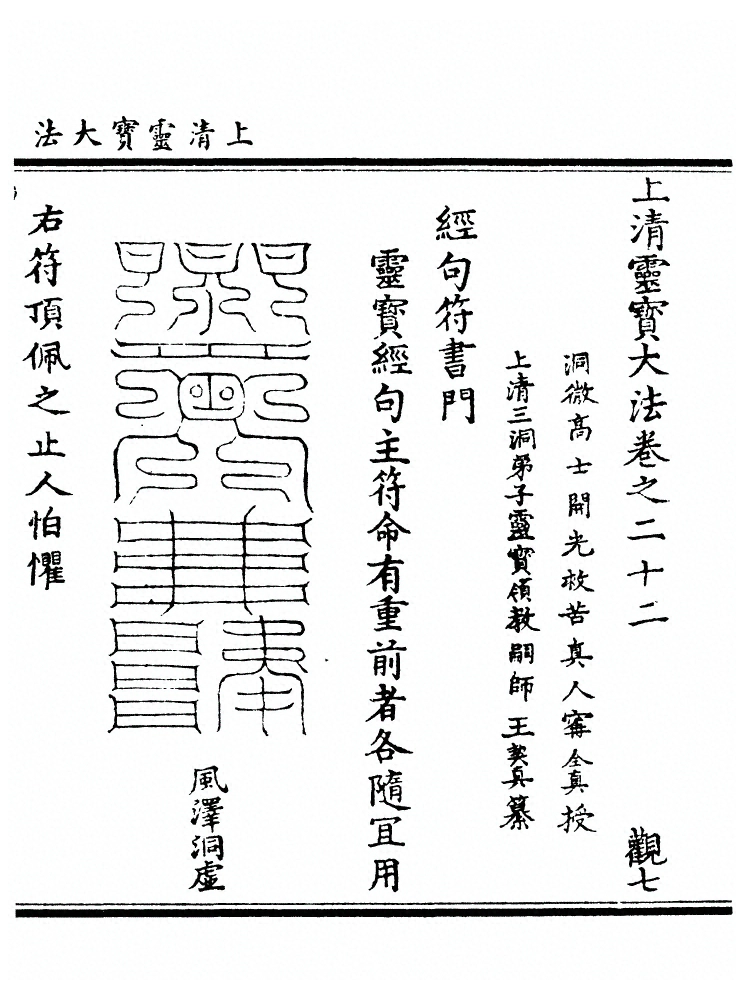 上清靈寶大法
上清靈寶大法卷之二十二 觀七
洞微高士開光救苦真人甯全真授
上清三洞弟子靈寶領教嗣師王契真纂
經句符書門
靈寶經句主符命有重前者各隨宜用
風澤洞虛
右符頂佩之止人怕懼